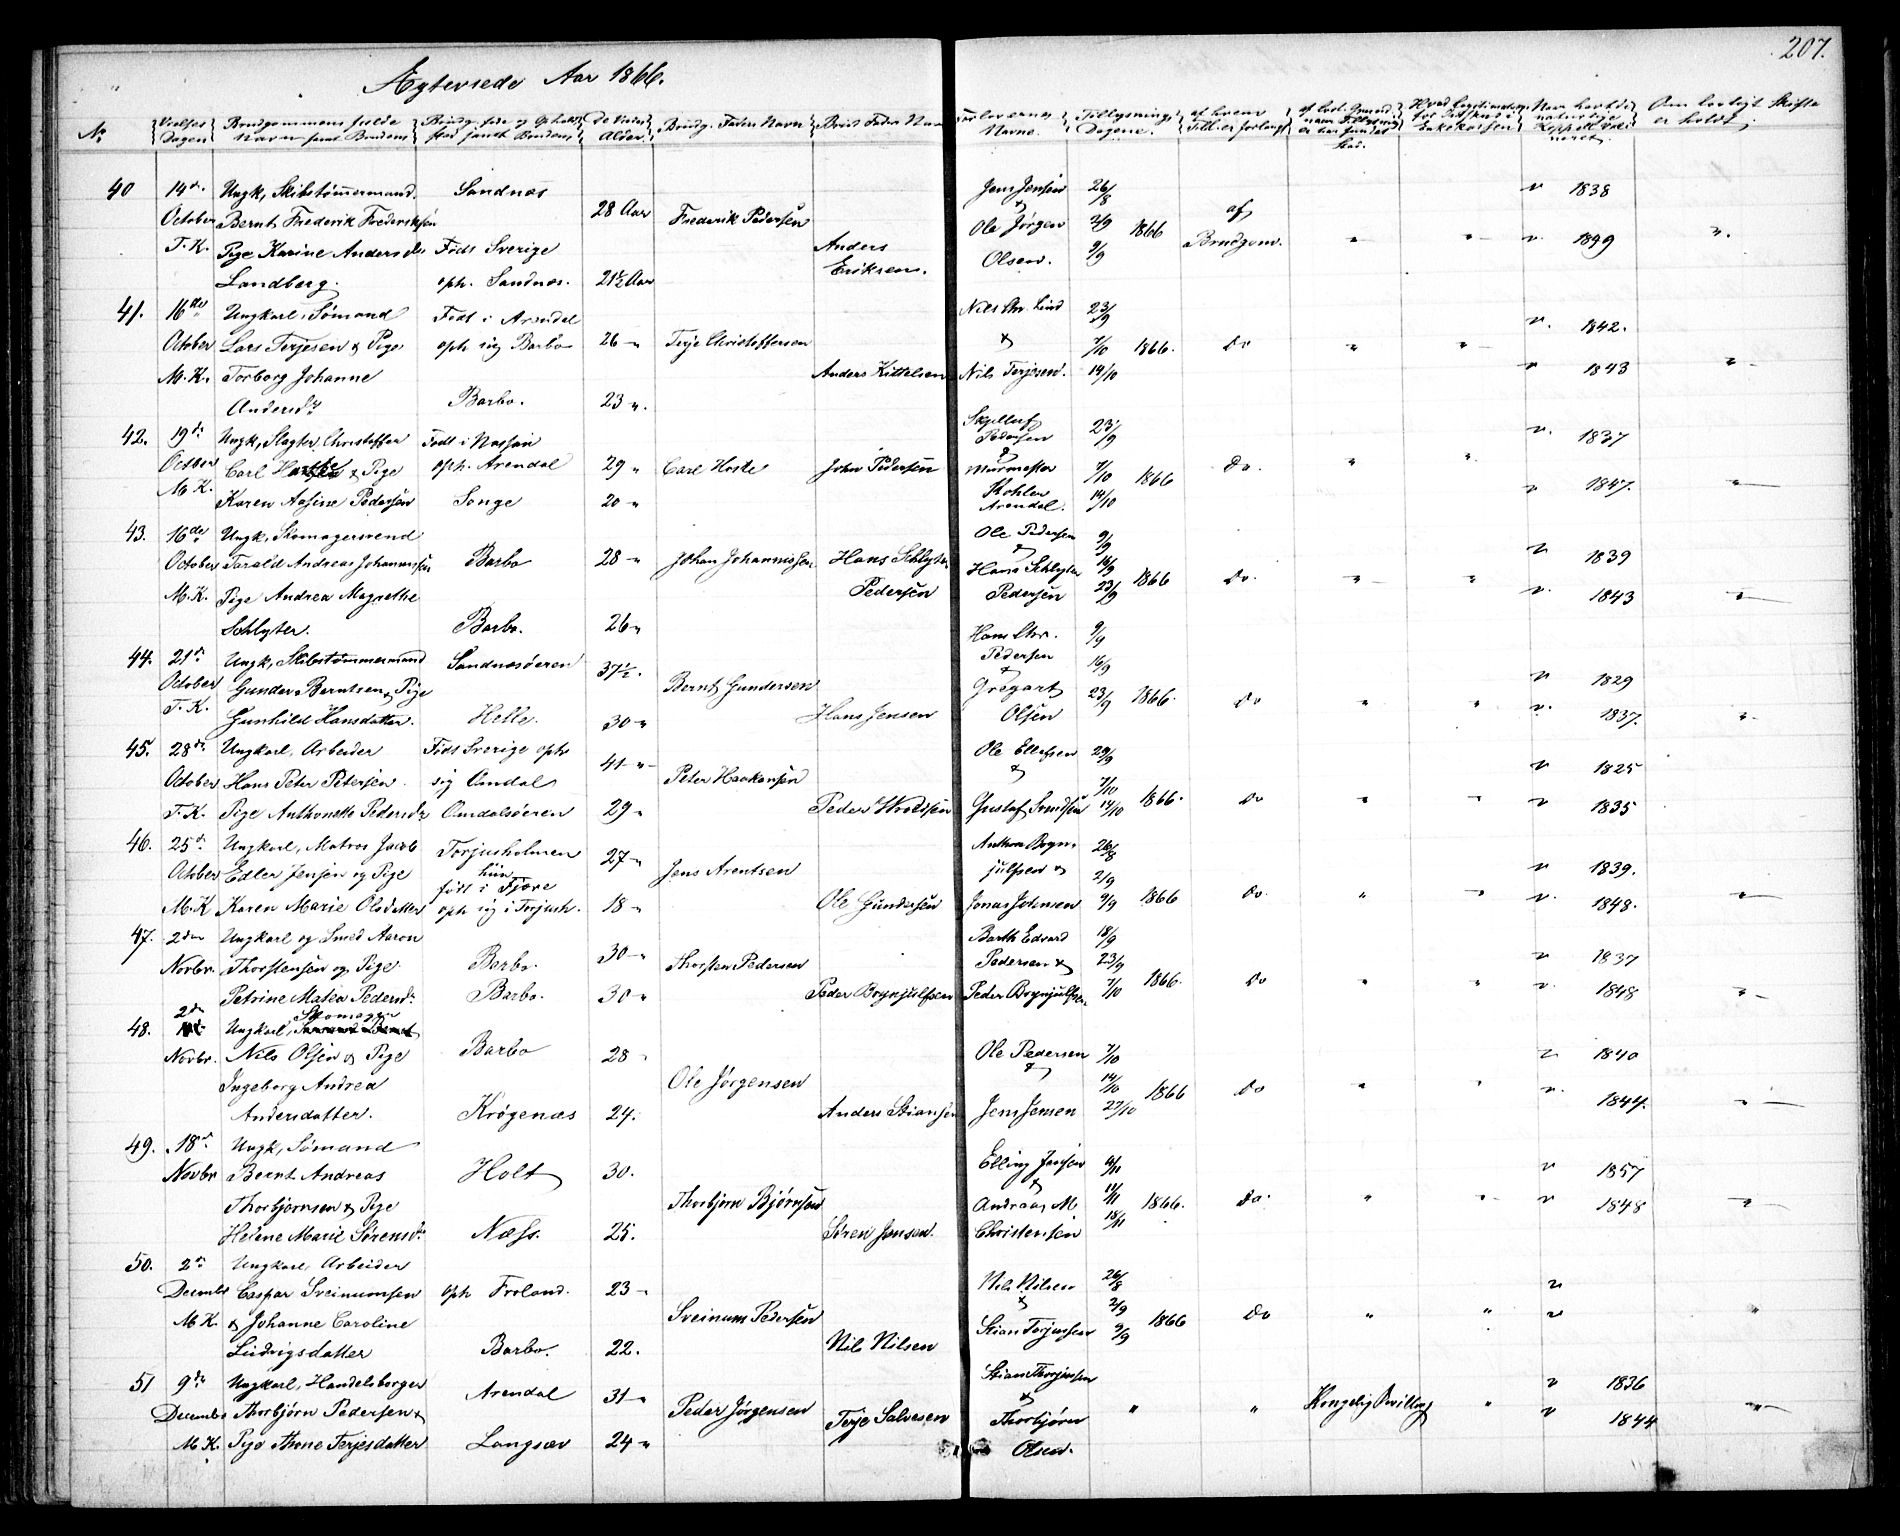 207.
Ægteviede Aar 1866.
No
Vielses Dagen
Brudgommens fulde Navn samt Brudens
Alder.
Brudg. Faders Navn
Forlovernes Navne.
Tillysnings Dagene.
40 14de Ungk, Skibstømmermand. Sandnæs Jens Jensen 26/8 " 1838
October Bernt Frederik Frederiksen 28 Aar Frederik Pedersen & Ole Jørgen 2/9 1866 af
T. K. Pige Karine Andersd. Født Sverige Anders Olsen. 9/9 Brudgom. " " " 1899 "
Landberg. oph. Sandnæs. 21½ Aar Eriksen.
41. 16de Ungkarl, Sømand Født i Arendal Nils Chr. Lind 23/9 " 1842.
October Lars Terjesen & Pige oph sig Barbo 26 " Terje Christoffersen & 7/10 1866. Do " "
M. K. Torborg Johanne Anders Kittelsen Nils Terjesen. 14/10 " 1843 "
Andersdr Barbo. 23 ".
42. 19de Ungk, Slagter Christoffer Født i Nassau Pedersen 23/9 " 1837
October Carl & Pige oph. Arendal 29 " Carl Hoste John Pedersen & Murmester 7/10 1866 Do. " "
M. K. Karen Aasine Pedersen Songe 20 " Kohler Arendal. 14/10 " 1847. "
43. 16de Ungk, Skomagersvend Ole Pedersen 9/9
October Tarald Andreas Johannessen Barbo 28 " Johan Johannessen Hans Schlyter & Hans Schlyter 16/9 1866 Do. " " " 1839
M. K. Pige Andrea Magrethe Pedersen Pedersen 23/9 " 1843 "
Schlyter. Barbo. 26 " Hans Chr. 9/9
44. 21de Ungk, Skibstømmermand Sandnæsøeren 37½. Pedersen 16/9 " 1829
October Gunder Berntsen & Pige Bernt Gundersen & Gregart 23/9 1866. Do " "
T. K. Gunhild Hansdatter. Helle. 30 " Hans Jensen Olsen " 1837. "
45. 28de Ungkarl, Arbeider Født Sverige oph 41 " Ole Ellefsen 29/9 " 1825
October Hans Peter Petersen. sig Omdal Peter Haakensen & 7/10
T. K. Pige Anthonette Pedersdr Omdalsøeren 29 " Peder Gustaf Svendsen 14/10 1866. Do " " " 1835
46. 25de Ungkarl, Matros Jacob Torjusholmen 27 " Anthon Bryn- 26/8
October Edler Jensen og Pige hun født i Fjære Jens Arentsen julfsen & 2/9 " 1839.
M. K Karen Marie Olsdatter oph sig i Torjush. 18 " Ole Gundersen Jonas Johnsen 9/9 1866 Do. " " " 1848. "
47. 2den Ungkarl og Smed Aaron Barth Edvard 16/9
Novbr. Thorstensen og Pige Barbo. 30 " Thorsten Pedersen Pedersen & 23/9 " 1837
Petrine Matea Pedersdr Barbo. 30 " Peder Brynjulfsen Peder Brynjulfsen 7/10 1866. Do " " " 1848 "
48. 2den Ungkarl, Skomager
Novbr. Nils Olsen & Pige Barbo 28 " Ole Pedersen 7/10 " 1840
Ingeborg Andrea Ole Jørgensen & 14/10 1866 Do " "
Andersdatter. Krøgenæs 24. Anders Stiansen Jens Jensen 27/10 " 1844. "
49. 18de Ungk, Sømand
Novbr Bernt Andreas Holt 30. Elling Jensen 4/11 " 1857
Thorbjornsen & Pige Thorbjørn Bjørnsen & Andreas M. 11/11 1866. Do. " " " 1848 "
Helene Marie Sørensdr Næss. 25. Søren Jensen. Christensen 18/11
50. 2de Ungkarl, Arbeider
Decembr Caspar Sveinumsen oph Froland. 23 " Nils Nilsen 26/8 "
M K. & Johanne Caroline Sveinum Pedersen & 2/9 1866 Do " " " "
Ludvigsdatter Barbo. 22. Nils Nilsen Stian Torjussen 9/9
51 9de Ungkarl, Handelsborger Arendal 31 " Stian Thorjussen " 1836
Decembr Thorbjørn Pedersen & Peder Jørgensen Terje Salvesen & Thorbjørn " " Kongelig Bevilling " " 1844 "
M K. Pige Thone Terjesdatter Langsæv 24 " Olsen.